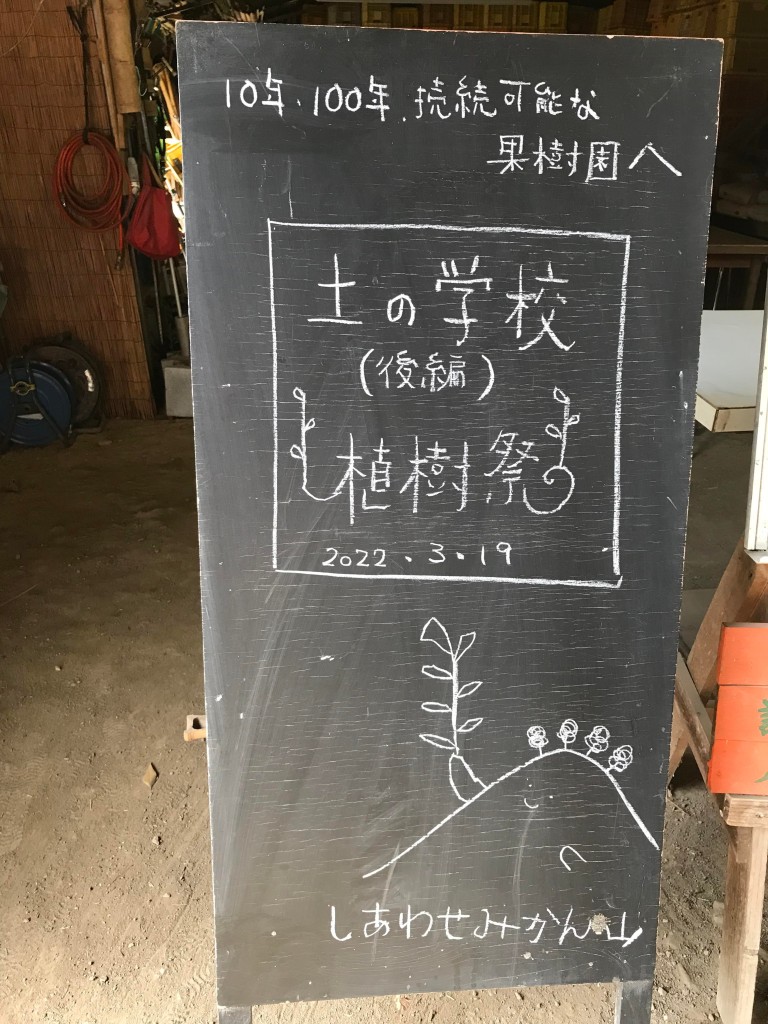 10年・100年、持続可能な
果樹園へ
土の学校
(後編)
植樹祭
2022.3.19
しあわせみかん山